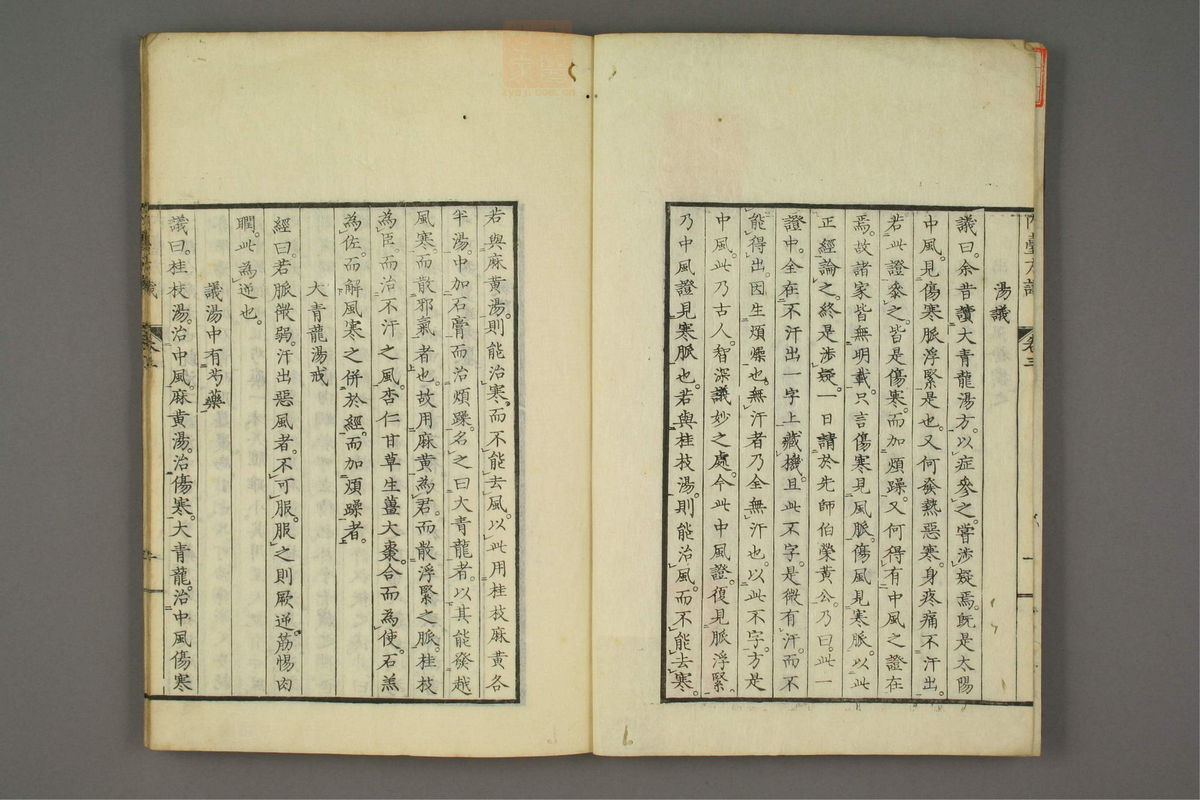 湯議
議曰。余昔讀大青龍湯方。以症參之。嘗渉疑焉。既是太陽
中風。見傷寒脈浮緊是也。又何發熱惡寒。身疼痛不汗出。
若此證參之。皆是傷寒。而加煩躁。又何得有中風之證在
焉。故諸家皆無明載。只言傷寒見風脈。傷風見寒脈。以此
正經論之。終是渉疑。一日請於先師伯榮黄公。乃曰。此一
證中。全在不汗出一字上藏機。且此不字。是微有汗。而不
能得出。因生煩燥也。無汗者乃全無汗也。以此不字。方是
中風。此乃古人。智深議妙之處。今此中風證。復見脈浮緊。
乃中風證見寒脈也。若與桂枝湯。則能治風。而不能去寒。
若與麻黄湯。則能治寒。而不能去風。以此用桂枝麻黄各
半湯。中加石膏而治煩躁。名之曰大青龍者。以其能發越
風寒。而散邪氣者也。故用麻黄為君。而散浮緊之脈。桂枝
為臣。而治不汗之風。杏仁甘草生薑大棗。合而為使。石羔
為佐。而解風寒之併於經。而加煩躁者。
大青龍湯戒
經曰。若脈微弱。汗出惡風者。不可服。服之則厥逆。筋惕肉
瞤。此為逆也。
議湯中有芍藥
議曰。桂枝湯。治中風。麻黄湯。治傷寒。大青龍。治中風傷寒